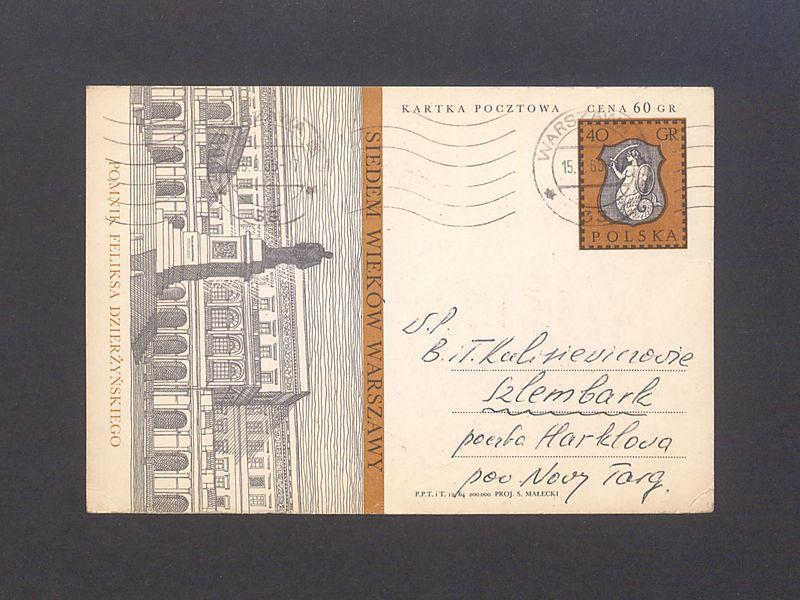 POMNIK FELIKSA DZIERŻYŃSKIEGO
SIEDEM WIEKÓW WARSZAWY
KARTKA POCZTOWA CENA 60 GR
WARSZAWA
40 GR
POLSKA
W.P.
B. i T. Kulisiewiczowie
Szlembark
poczta Harklowa
pow. Nowy Targ.
P.P.T. i T. 12/64 200.000 PROJ. S. MAŁECKI